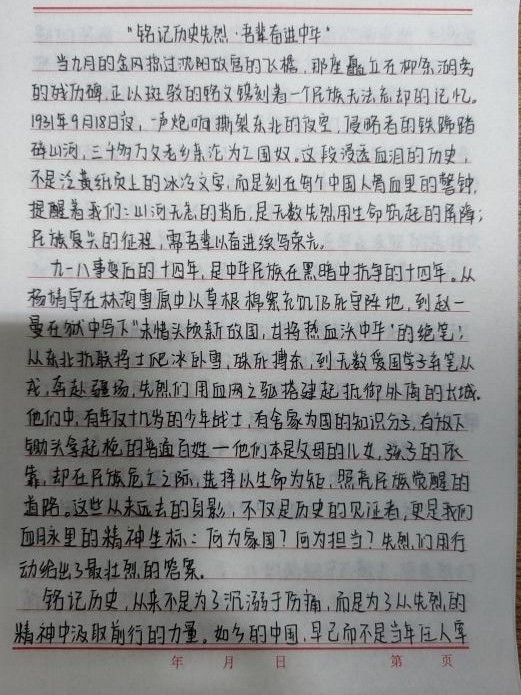 “铭记历史先烈·吾辈奋进中华”
当九月的金风掠过沈阳故宫的飞檐，那座矗立在柳条湖旁
的残历碑，正以斑驳的铭文镌刻着一个民族无法忘却的记忆。
1931年9月18日夜，一声炮响撕裂东北的夜空，侵略者的铁蹄踏
碎山河，三千多万父老乡亲沦为亡国奴。这段浸透血泪的历史，
不是泛黄纸页上的冰冷文字，而是刻在每个中国人骨血里的警钟，
提醒着我们：山河无恙的背后，是无数先烈用生命筑起的屏障；
民族复兴的征程，需吾辈以奋进续写荣光。
九一八事变后的十四年，是中华民族在黑暗中抗争的十四年。从
杨靖宇在林海雪原中以草根棉絮充饥仍死守阵地，到赵一
曼在狱中写下“未惜头颅新故国，甘将热血沃中华”的绝笔；
从东北抗联将士爬冰卧雪，殊死搏杀，到无数爱国学子弃笔从
戎，奔赴疆场，先烈们用血肉之躯搭建起抵御外侮的长城。
他们中，有年仅十几岁的少年战士，有舍家为国的知识分子，有放下
锄头拿起枪的普通百姓—他们本是父母的儿女，孩子的依
靠，却在民族危亡之际，选择以生命为炬，照亮民族觉醒的
道路。这些从未远去的身影，不仅是历史的见证者，更是我们
血脉里的精神坐标：何为家国？何为担当？先烈们用行
动给出了最壮烈的答案。
铭记历史，从来不是为了沉溺于伤痛，而是为了从先烈的
精神中汲取前行的力量。如今的中国，早已而不是当年任人宰
年 月 日 第 页